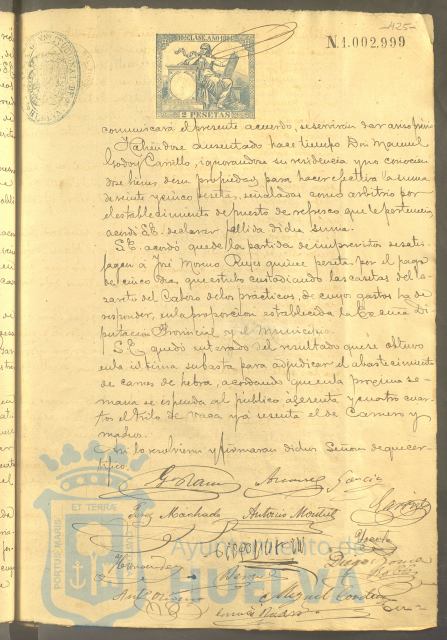 425
N.1.002.999
10ª CLASE. AÑO 1884
2 PESETAS
comunicará el presente acuerdo, se servirán dar aviso previo
Habiéndose ausentado hace tiempo Don Manuel
Godoy Carrillo, ignorandose su residencia y no conocien
dose bienes de su propiedad, para hacer efectiva la suma
de veinte y cinco peseta, señaladas como arbitrio por
el establecimiento de puesto de refresco que le pertenecia,
acordó S.E. declarar fallida dicha suma.
S.E. acordó que de la partida de imprevistos se satis
fagan á José Moreno Reyes quince peseta, por el pago
de cinco dias que estubo custodiando las casetas del la
zareto del Cabezo de los practicos, de cuyos gastos ha de
responder, en la proporcion establecida la Excma Di
putacion Provincial y el Municipio.
S.E. quedó enterado del resultado que se obtuvo
en la última subasta para adjudicar el abastecimiento
de carnes de hebra, acordando que en la proxima se
mana se espenda al público á sesenta y cuatro cuar
tos el kilo de vaca y á sesenta el de Carnero y
macho.
Asi lo resolvieron y firmaron dichos Señores de que cer
tifico.
García
Machado Antonio
Hernandez
Diego
Miguel
PORTUS MARIS
ET TERRAE
Ayuntamiento de
HUELVA